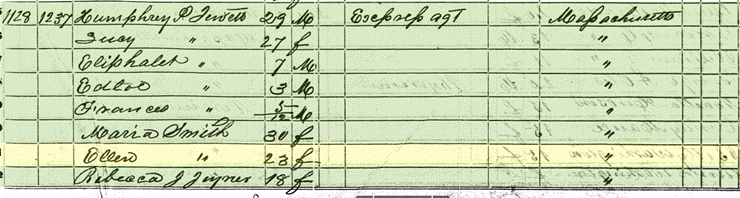 1128 1237 Humphrey P Jewett 29 M Express agt Massachusetts
Lucy " 27 f "
Eliphalet " 7 M "
3 M "
Frances " 5/12 M "
Maria Smith 30 f "
Ellen " 23 f "
Rebecca J Joyner 18 f "